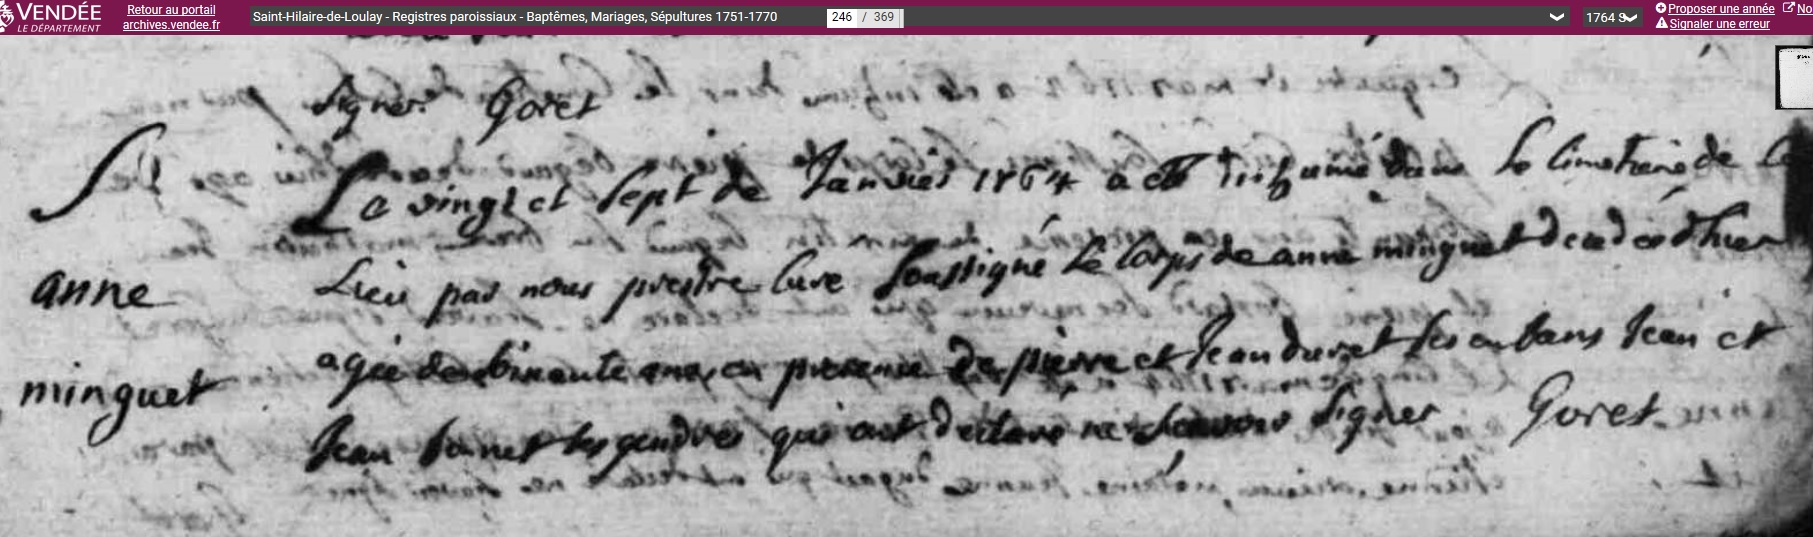 VENDÉE
LE DÉPARTEMENT
Retour au portail
archives.vendee.fr
Saint-Hilaire-de-Loulay - Registres paroissiaux - Baptêmes, Mariages, Sépultures 1751-1770
246 / 369
1764 S
Proposer une année
No
Signaler une erreur
signer. Goret
S
Le vingt et sept de Janvier 1764 a été Inhumé dans le cimetiere de ce
anne
Lieu par nous prestre Curé soussigné le corps de anne minguet decedée d'hier
minguet
agée de ans en presence de pierre et Jean duret ses enfans Jean et
Jean ses gendres qui ont declaré ne scavoir signer Goret